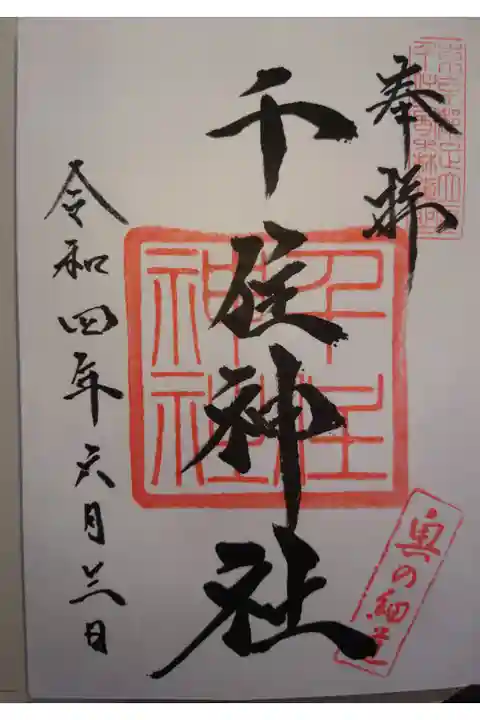 奉拝
千住神社
千住
神社
奥の細道
令和四年六月三日